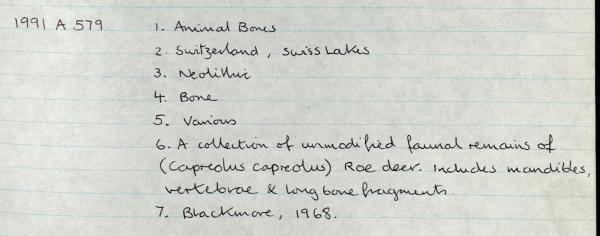 1991 A 579 1. Animal Bones
2. Switzerland, Swiss Lakes
3. Neolithic
4. Bone
5. Various
6. A collection of unmodified faunal remains of
(Capreolus capreolus) Roe deer. Includes mandibles,
vertebrae & long bone fragments.
7. Blackmore, 1968.